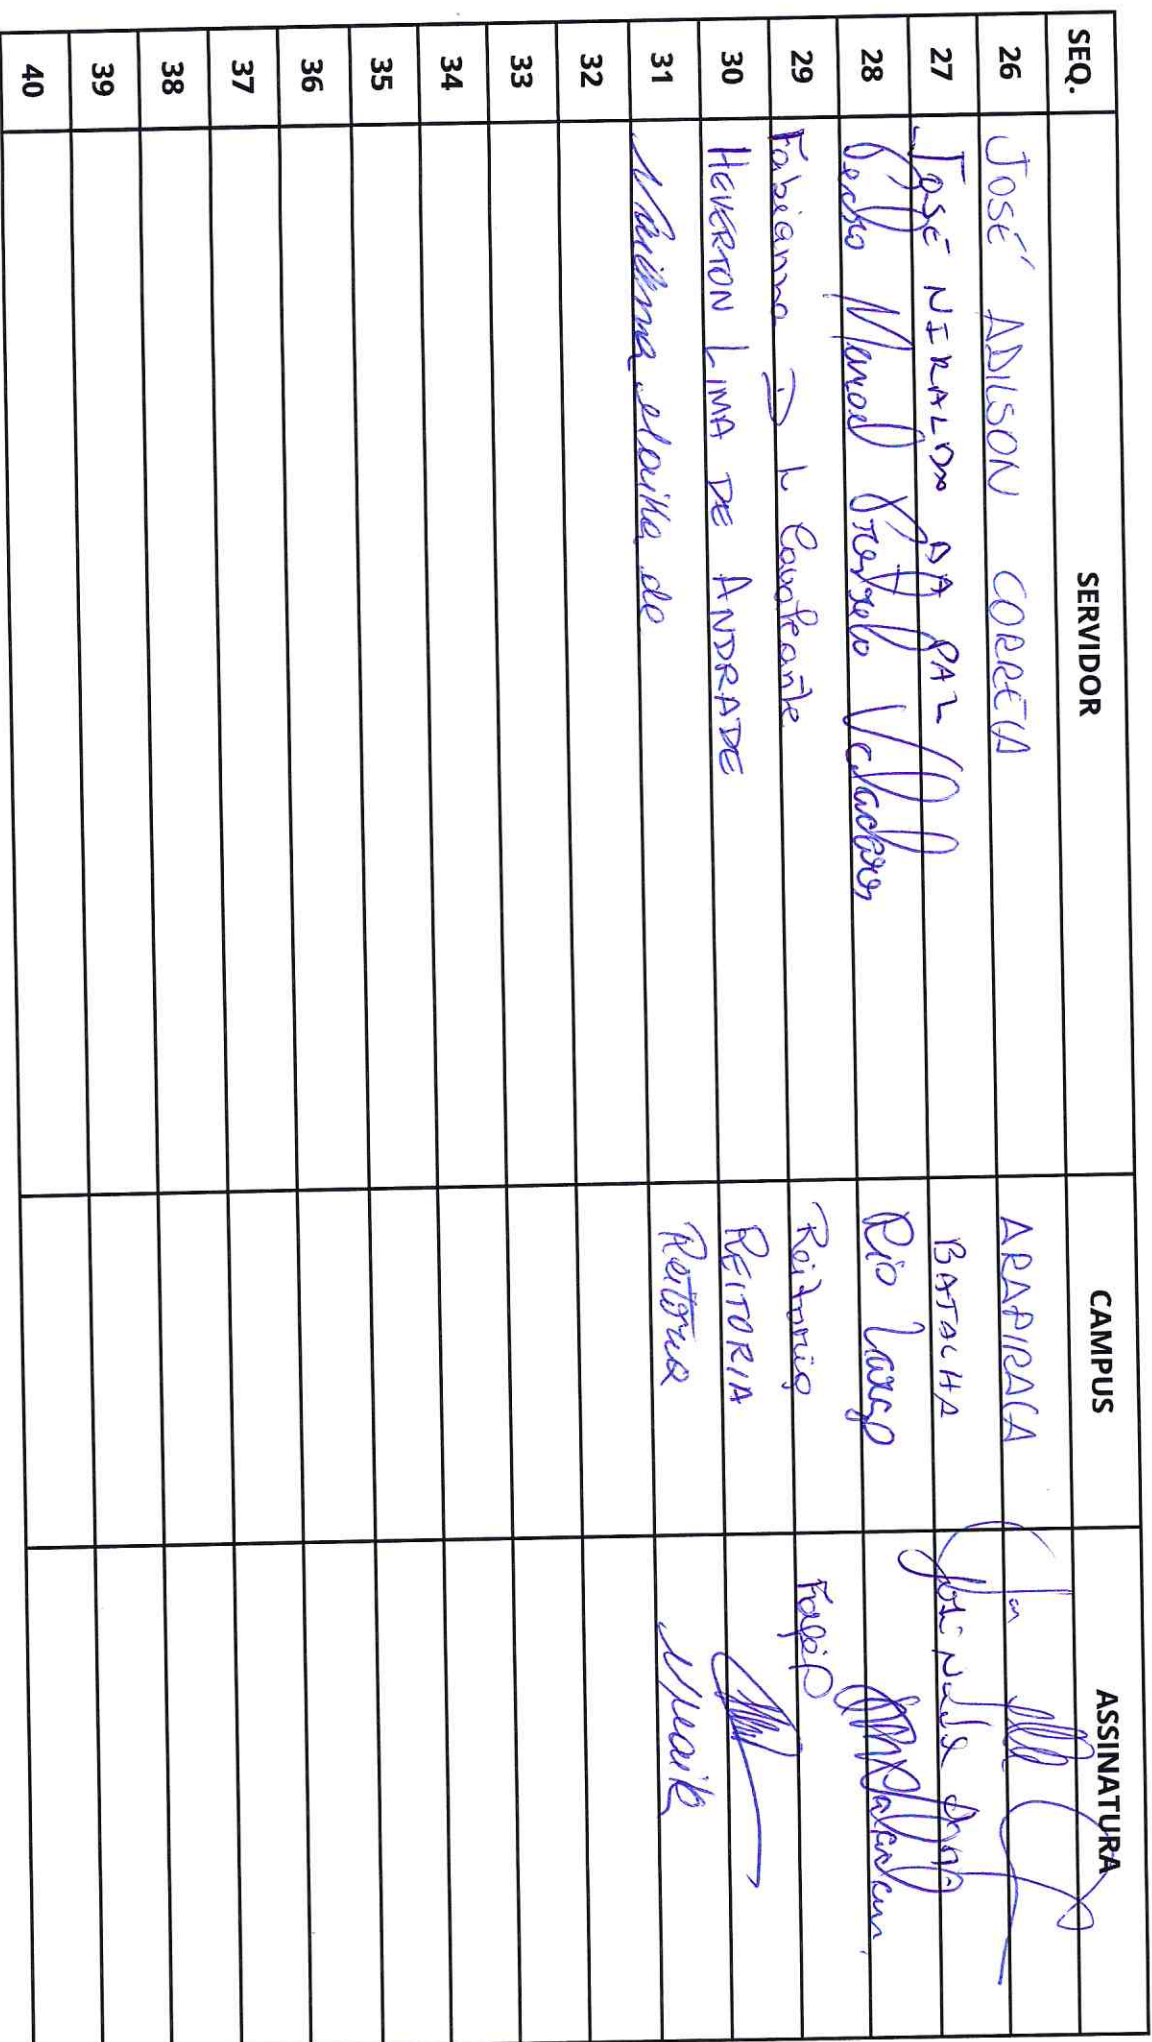 SEQ. SERVIDOR CAMPUS ASSINATURA
26 JOSÉ ADILSON CORREIA ARAPIRACA
27 JOSÉ NIRALDO DA PAZ BATALHA
28 Pedro Manoel Valadares Rio Largo
29 Fabianna D L Cavalcante Reitoria
30 HEVERTON LIMA DE ANDRADE REITORIA
31 de Reitoria
32
33
34
35
36
37
38
39
40